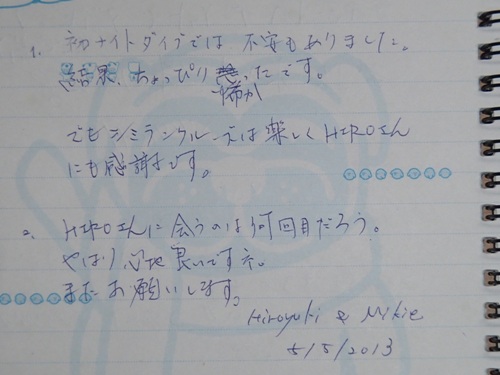 1. 初ナイトダイブでは 不安もありました。
結果、ちょっぴり ったです。
怖か
でもシミランクルーズは楽しくHIROさん
にも感謝です。
2. HIROさんに会うのは何回目だろう。
やはり心地良いですネ。
またお願いします。
Hiroyuki & Mikie
5/5/2013